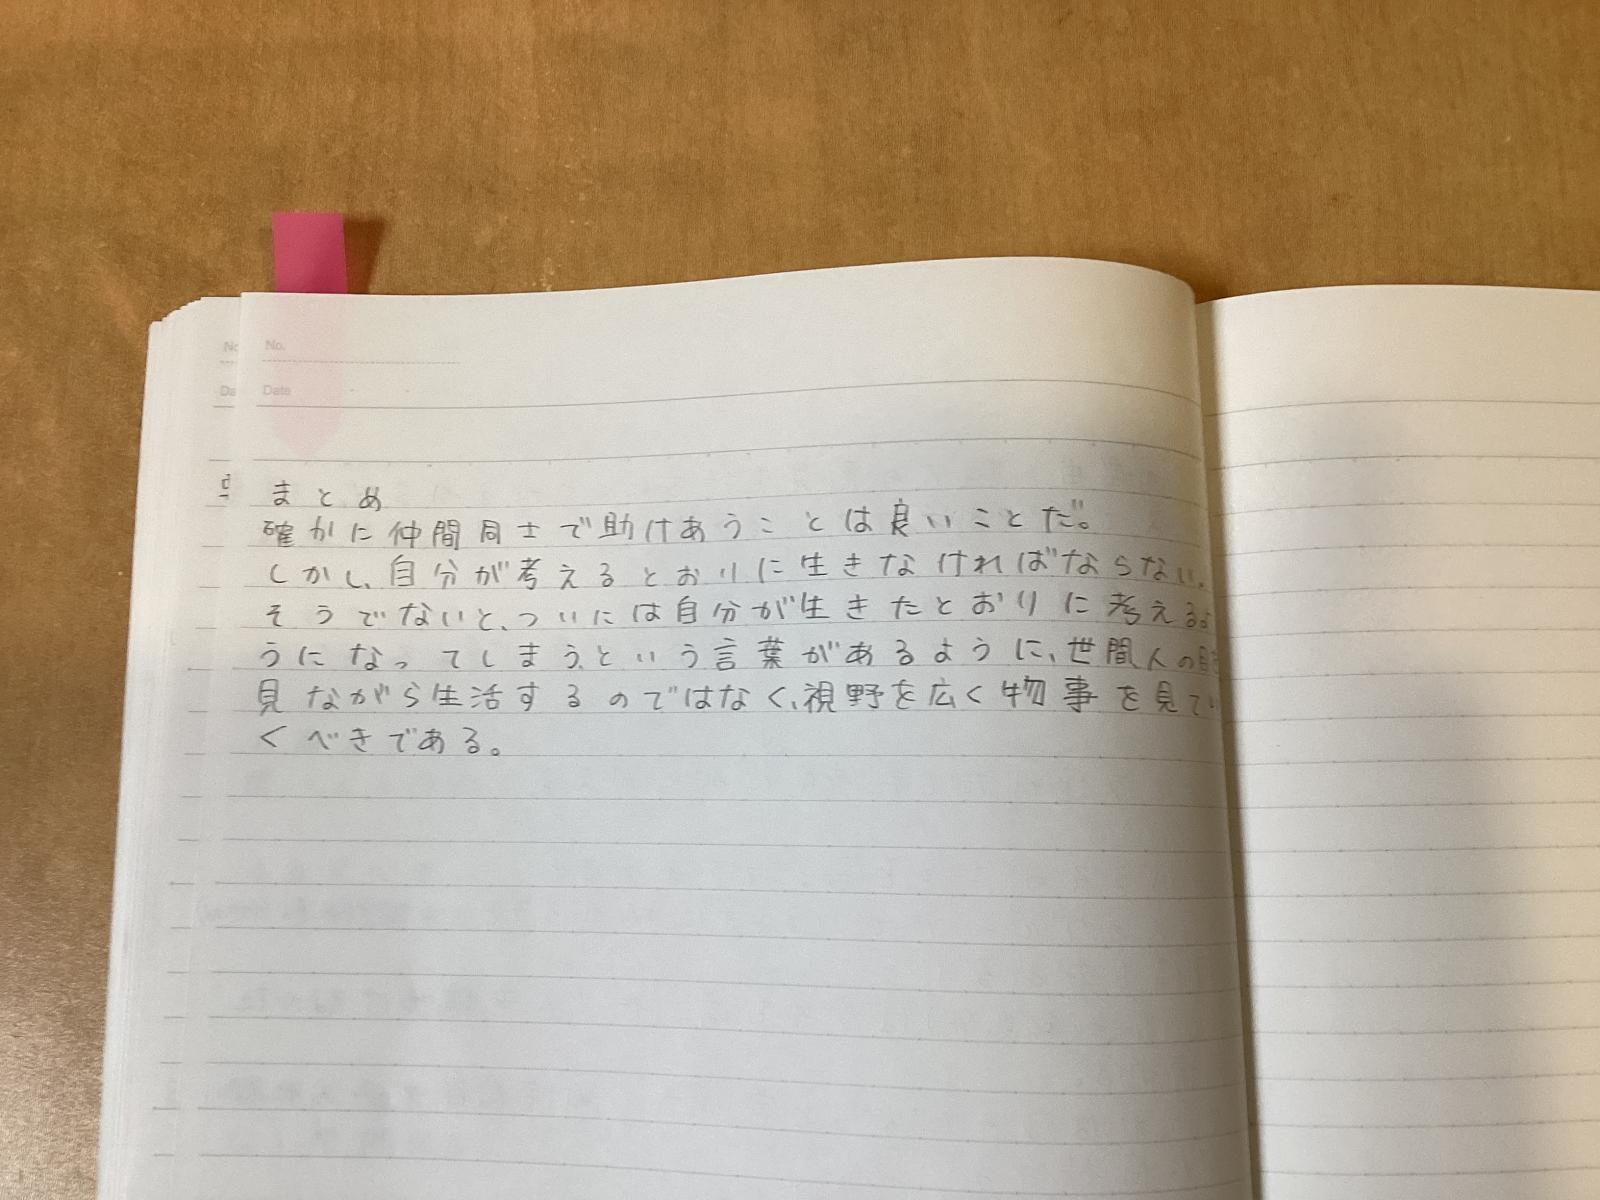 No.
Date
まとめ
確かに仲間同士で助けあうことは良いことだ。
しかし、自分が考えるとおりに生きなければならない。
そうでないと、ついには自分が生きたとおりに考えるよ
うになってしまう、という言葉があるように、世間人の目を
見ながら生活するのではなく、視野を広く物事を見てい
くべきである。